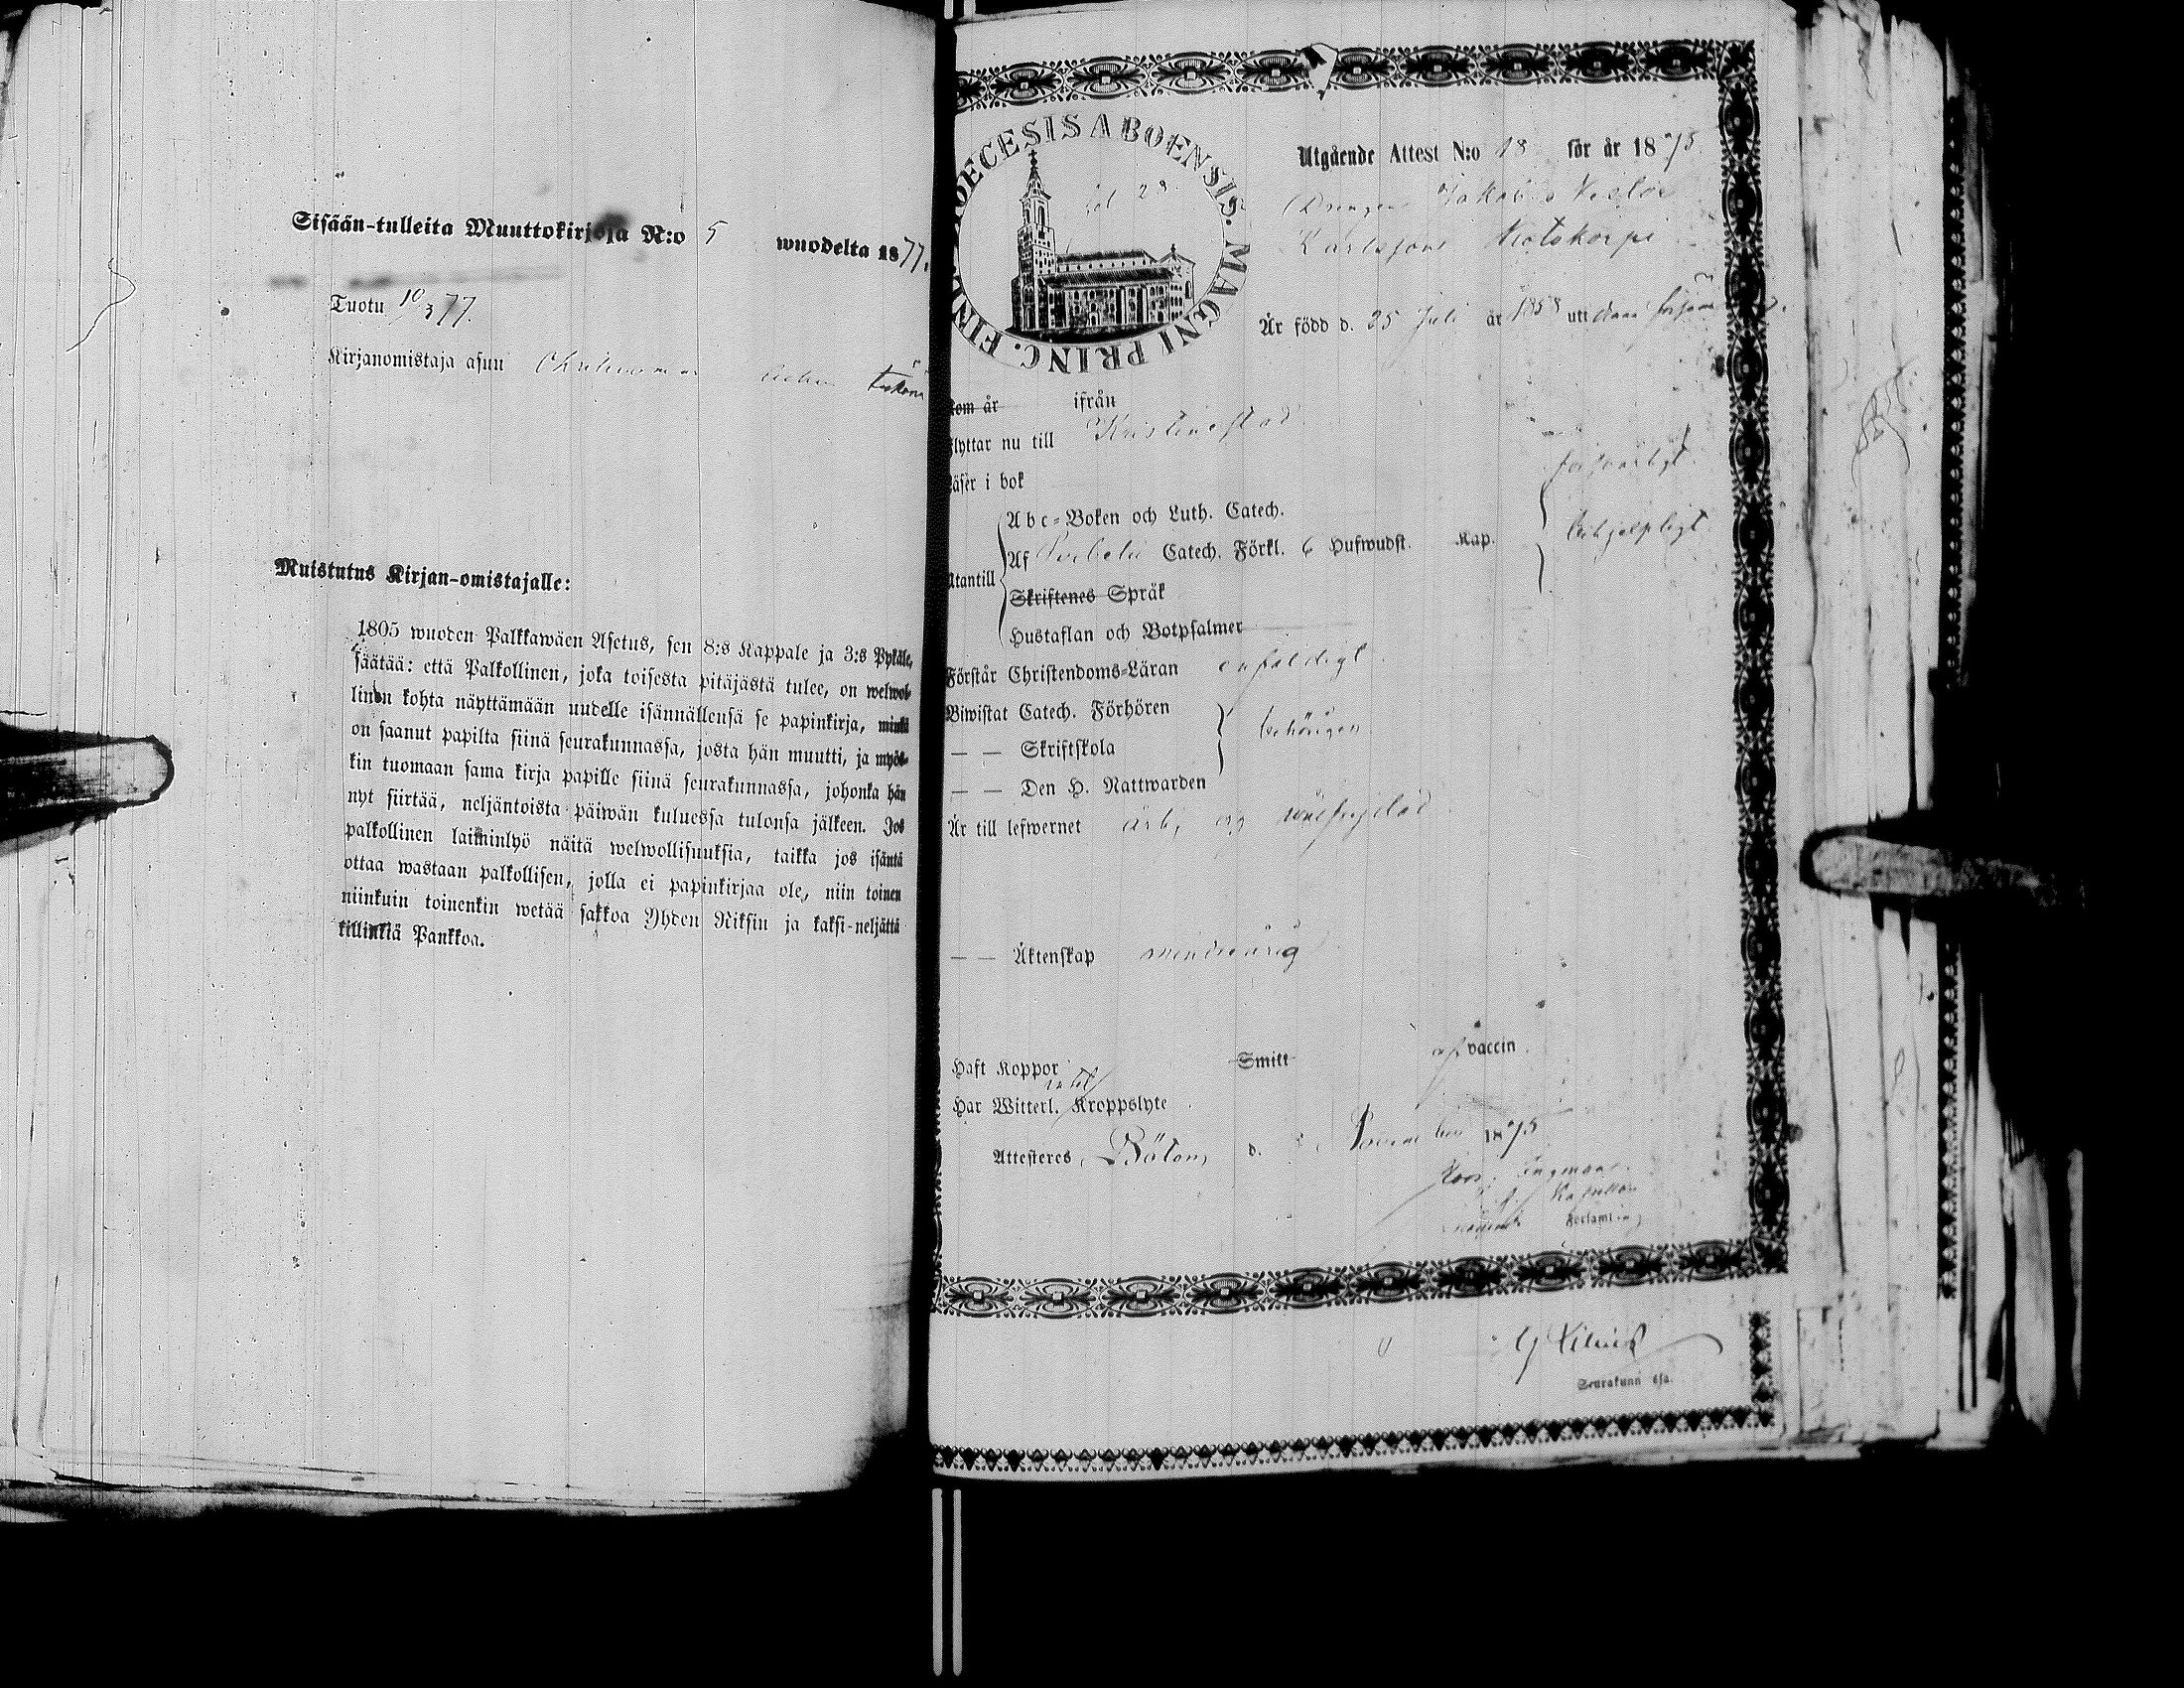 Sisään-tulleita Muuttokirjoja N:o 5 wuodelta 1877.
Tuotu 10/3 77.
Kirjanomistaja asuu
Muistutus Kirjan-omistajalle:
1805 wuoden Palkkawäen Asetus, sen 8:s Kappale ja 3:s Pykäle,
säätää: että Palkollinen, joka toisesta pitäjästä tulee, on welwol-
linen kohta näyttämään uudelle isännällensä se papinkirja, minkä
on saanut papilta siinä seurakunnassa, josta hän muutti, ja myös-
kin tuomaan sama kirja papille siinä seurakunnassa, johonka hän
nyt siirtää, neljäntoista päiwän kuluessa tulonsa jälkeen. Jos
palkollinen laiminlyö näitä welwollisuuksia, taikka jos isäntä
ottaa wastaan palkollisen, jolla ei papinkirjaa ole, niin toinen
niinkuin toinenkin wetää sakkoa Yhden Riksin ja kaksi-neljättä
killinkiä Pankkoa.
DIOECESIS ABOENSIS. MAGNI PRINC. FINL.
Utgående Attest N:o 18 för år 1875.
Drengen Jakob
Karlsson
Är född d. 25 Juli år 1858 uti
Kom år ifrån
Flyttar nu till Kristinestad
Läser i bok försvarligt
Abc-Boken och Luth. Catech.
Utantill Af Catech. Förkl. 6 Hufwudst. Kap. behjelpligt
Skriftenes Språk
Hustaflan och Botpsalmer
Förstår Christendoms-Läran enfaldigt
Biwistat Catech. Förhören
— — Skriftskola behörigen
— — Den H. Nattwarden
Är till lefwernet och wälfrejdad
— — Äktenskap minderårig
Haft Koppor Smitt af vaccin.
Har Witterl. intet Kroppslyte.
Attesteres, d. November 1875
Ingman
Församling
Seurakunn